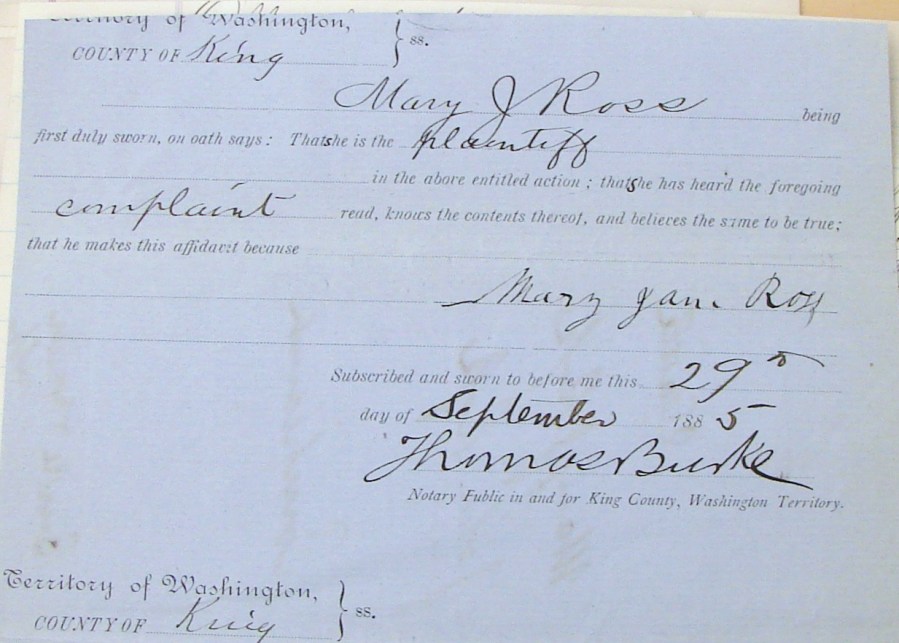 Territory of Washington,
COUNTY OF King } ss.
Mary J Ross being
first duly sworn, on oath says: That she is the plaintiff
in the above entitled action; that she has heard the foregoing
complaint read, knows the contents thereof, and believes the same to be true;
that he makes this affidavit because
Mary Jane Ross
Subscribed and sworn to before me this 29th
day of September 1885
Thomas Burke
Notary Public in and for King County, Washington Territory.
Territory of Washington,
COUNTY OF King } ss.